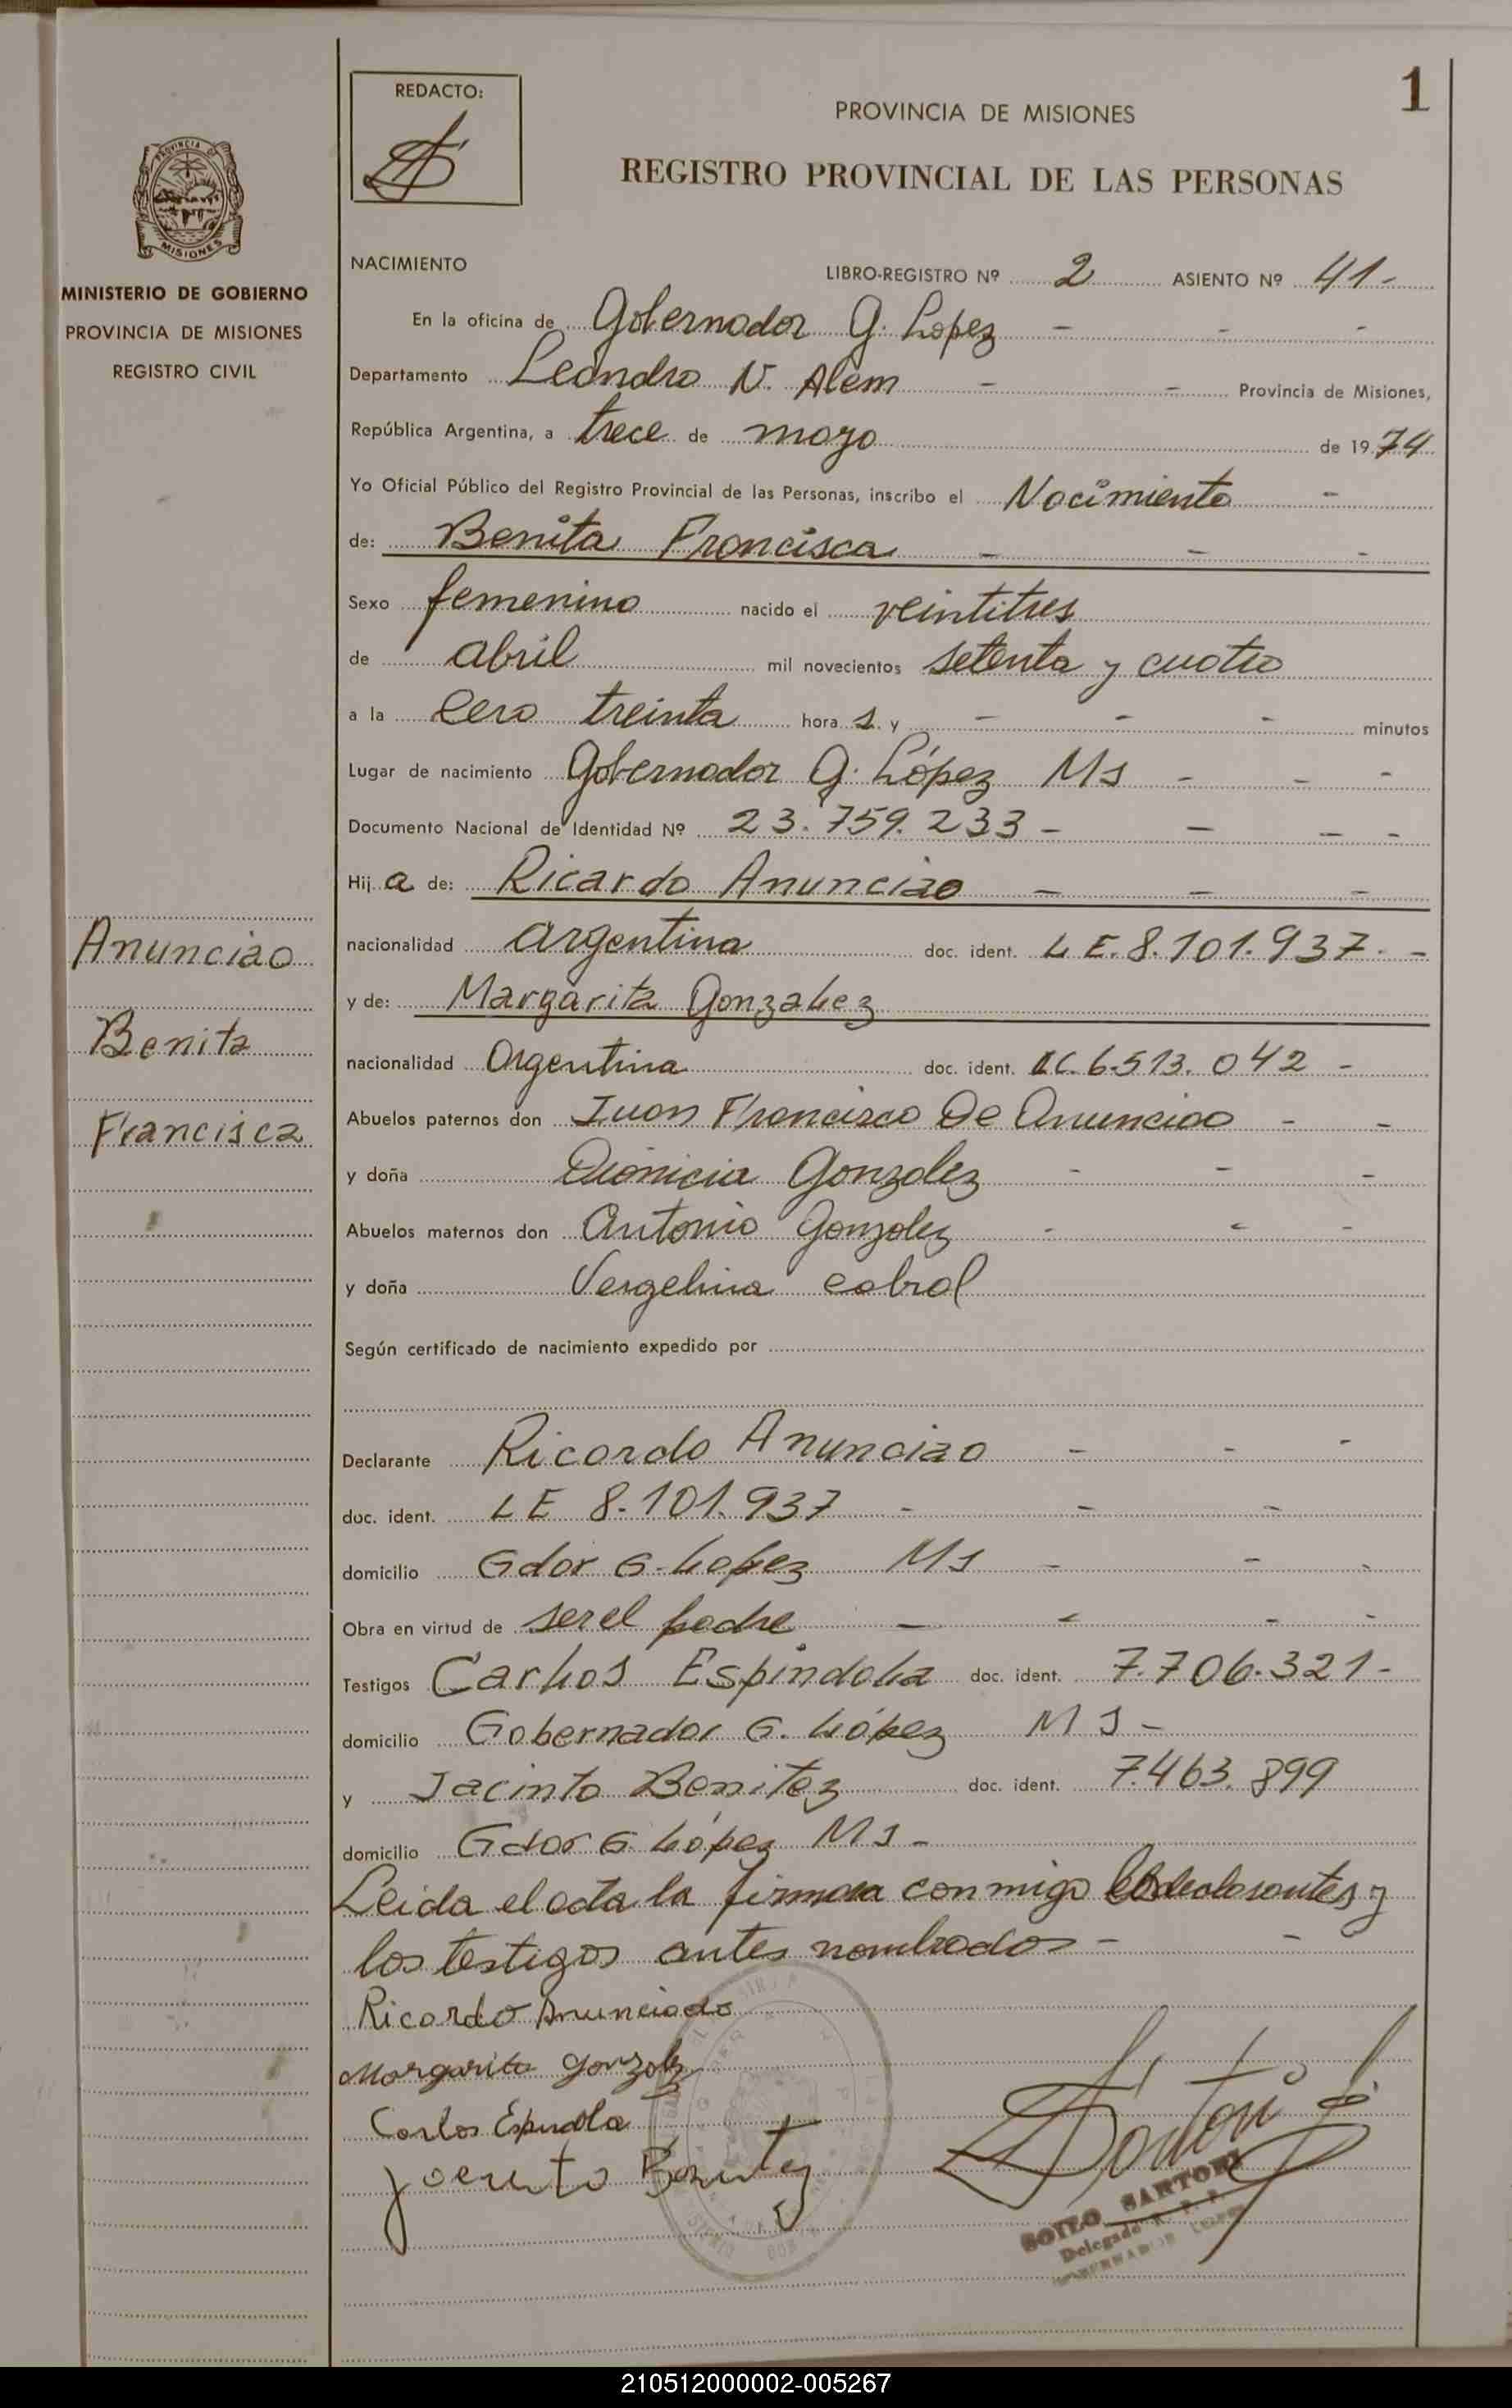 1
REDACTO:
PROVINCIA DE MISIONES
REGISTRO PROVINCIAL DE LAS PERSONAS
PROVINCIA DE
MISIONES
MINISTERIO DE GOBIERNO
PROVINCIA DE MISIONES
REGISTRO CIVIL
NACIMIENTO
LIBRO-REGISTRO Nº 2 ASIENTO Nº 41-
En la oficina de Gobernador G. Lopez - - -
Departamento Leandro N. Alem - - Provincia de Misiones,
República Argentina, a trece de mayo de 1974
Yo Oficial Público del Registro Provincial de las Personas, inscribo el Nacimiento -
de: Benita Francisca - - -
Sexo femenino nacido el veintitres
de abril mil novecientos setenta y cuatro
a la Cero treinta hora s y - - - minutos
Lugar de nacimiento Gobernador G. López Ms - - -
Documento Nacional de Identidad Nº 23.759.233 - - - -
Hija de: Ricardo Anunciao - - -
nacionalidad argentina doc. ident. L E. 8.101.937. -
y de: Margarita Gonzalez
nacionalidad Argentina doc. ident. LC. 6.513.042 -
Abuelos paternos don Juan Francisco De Anunciao - -
y doña Dionicia Gonzalez - - -
Abuelos maternos don Antonio Gonzalez - - -
y doña Vergelina Cabral
Según certificado de nacimiento expedido por
Declarante Ricardo Anunciao - - -
doc. ident. L E 8.101.937 - - -
domicilio Gdor G. Lopez Ms - - -
Obra en virtud de ser el padre - - - -
Testigos Carlos Espindola doc. ident. 7.706.321-
domicilio Gobernador G. López M s -
y Jacinto Benitez doc. ident. 7.463.899
domicilio Gdor G. López M s -
Leida el acta la firman conmigo declarantes y
los testigos antes nombrados - -
Anunciao
Benita
Francisca
Ricardo Anunciado
Margarita Gonzalez
Carlos Espindola
Jacinto Benitez
Sartori
SOILO SARTORI
Delegado R. P. P.
GOBERNADOR LOPEZ
210512000002-005267